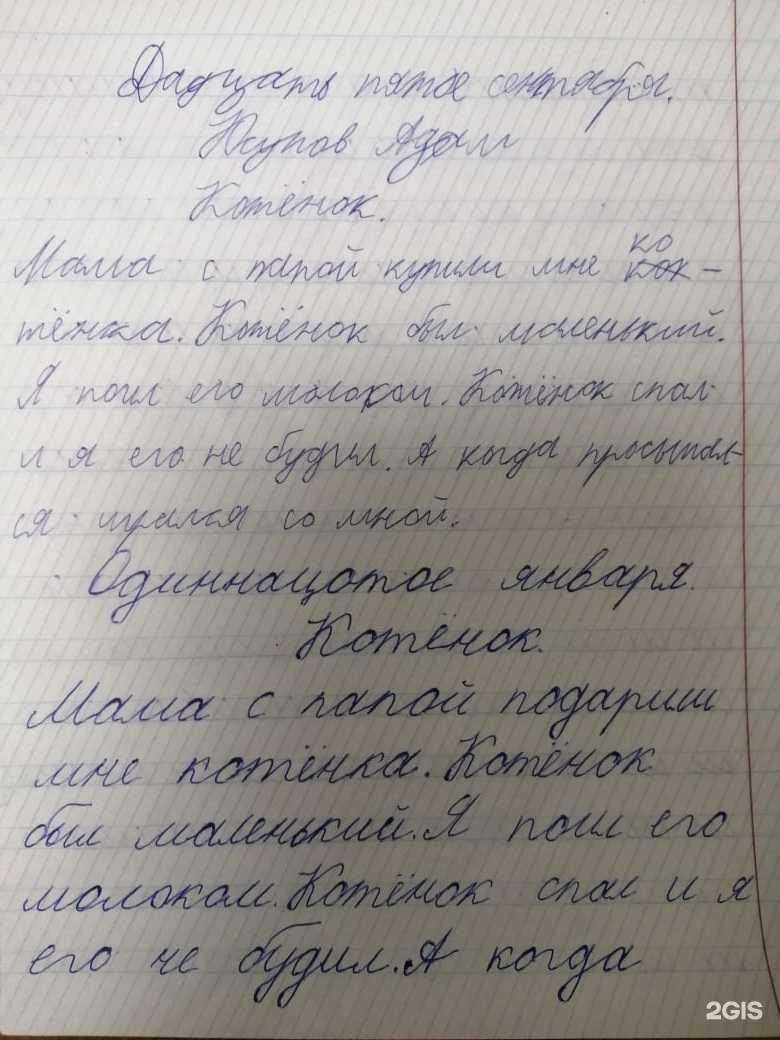 Дадцать пятое сентября.
Юсупов Адам
Котёнок.
Мама с папой купили мне ко
кок-
тёнка. Котёнок был маленький.
Я поил его молоком. Котёнок спал
и я его не будил. А кыгда просыпал-
ся игрался со мной.
Одиннацотое января.
Котёнок.
Мама с папой подарили
мне котёнка. Котёнок
был маленький. Я поил его
молоком. Котёнок спал и я
его не будил. А когда
2GIS